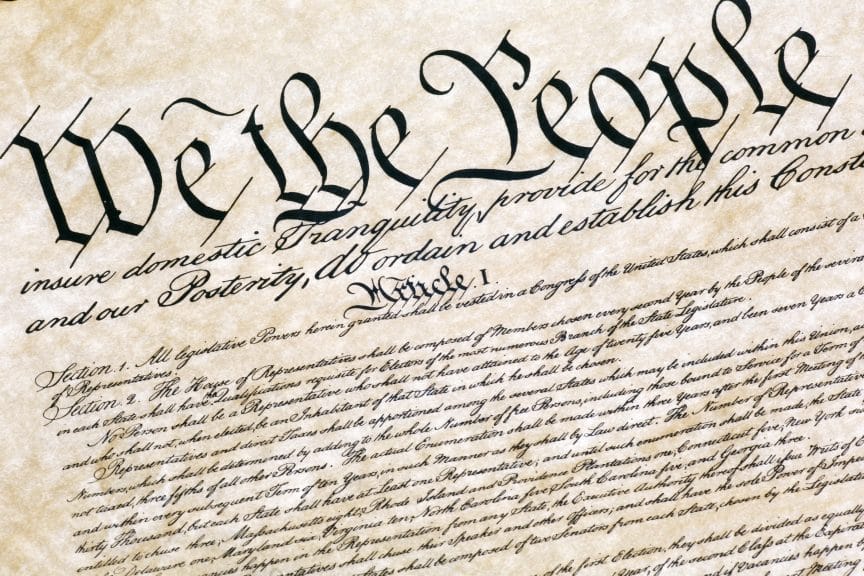 We the People
insure domestic Tranquility, provide for the common
and our Posterity, do ordain and establish this Const
Article I.
Section. 1. All legislative Powers herein granted shall be vested in a Congress of the United States, which shall consist of a
of Representatives.
Section. 2. The House of Representatives shall be composed of Members chosen every second Year by the People of the several
in each State shall have the Qualifications requisite for Electors of the most numerous Branch of the State Legislature.
No Person shall be a Representative who shall not have attained to the Age of twenty five Years, and been seven Years a
and who shall not, when elected, be an Inhabitant of that State in which he shall be chosen.
Representatives and direct Taxes shall be apportioned among the several States which may be included within this Union,
Numbers, which shall be determined by adding to the whole Number of free Persons, including those bound to Service for a Term of
not taxed, three fifths of all other Persons. The actual Enumeration shall be made within three Years after the first Meeting of
and within every subsequent Term of ten Years, in such Manner as they shall by Law direct. The Number of Representatives
thirty Thousand, but each State shall have at Least one Representative; and until such enumeration shall be made, the State
entitled to chuse three, Massachusetts eight, Rhode Island and Providence Plantations one, Connecticut five, New York
Delaware one, Maryland six, Virginia ten, North Carolina five, South Carolina five, and Georgia three.
happen in the Representation from any State, the Executive Authority thereof shall issue Writs of
shall chuse their Speaker and other Officers; and shall have the sole Power of
shall be composed of two Senators from each State, chosen by the
of the first Election, they shall be divided as
of the second Class at the
if Vacancies happen